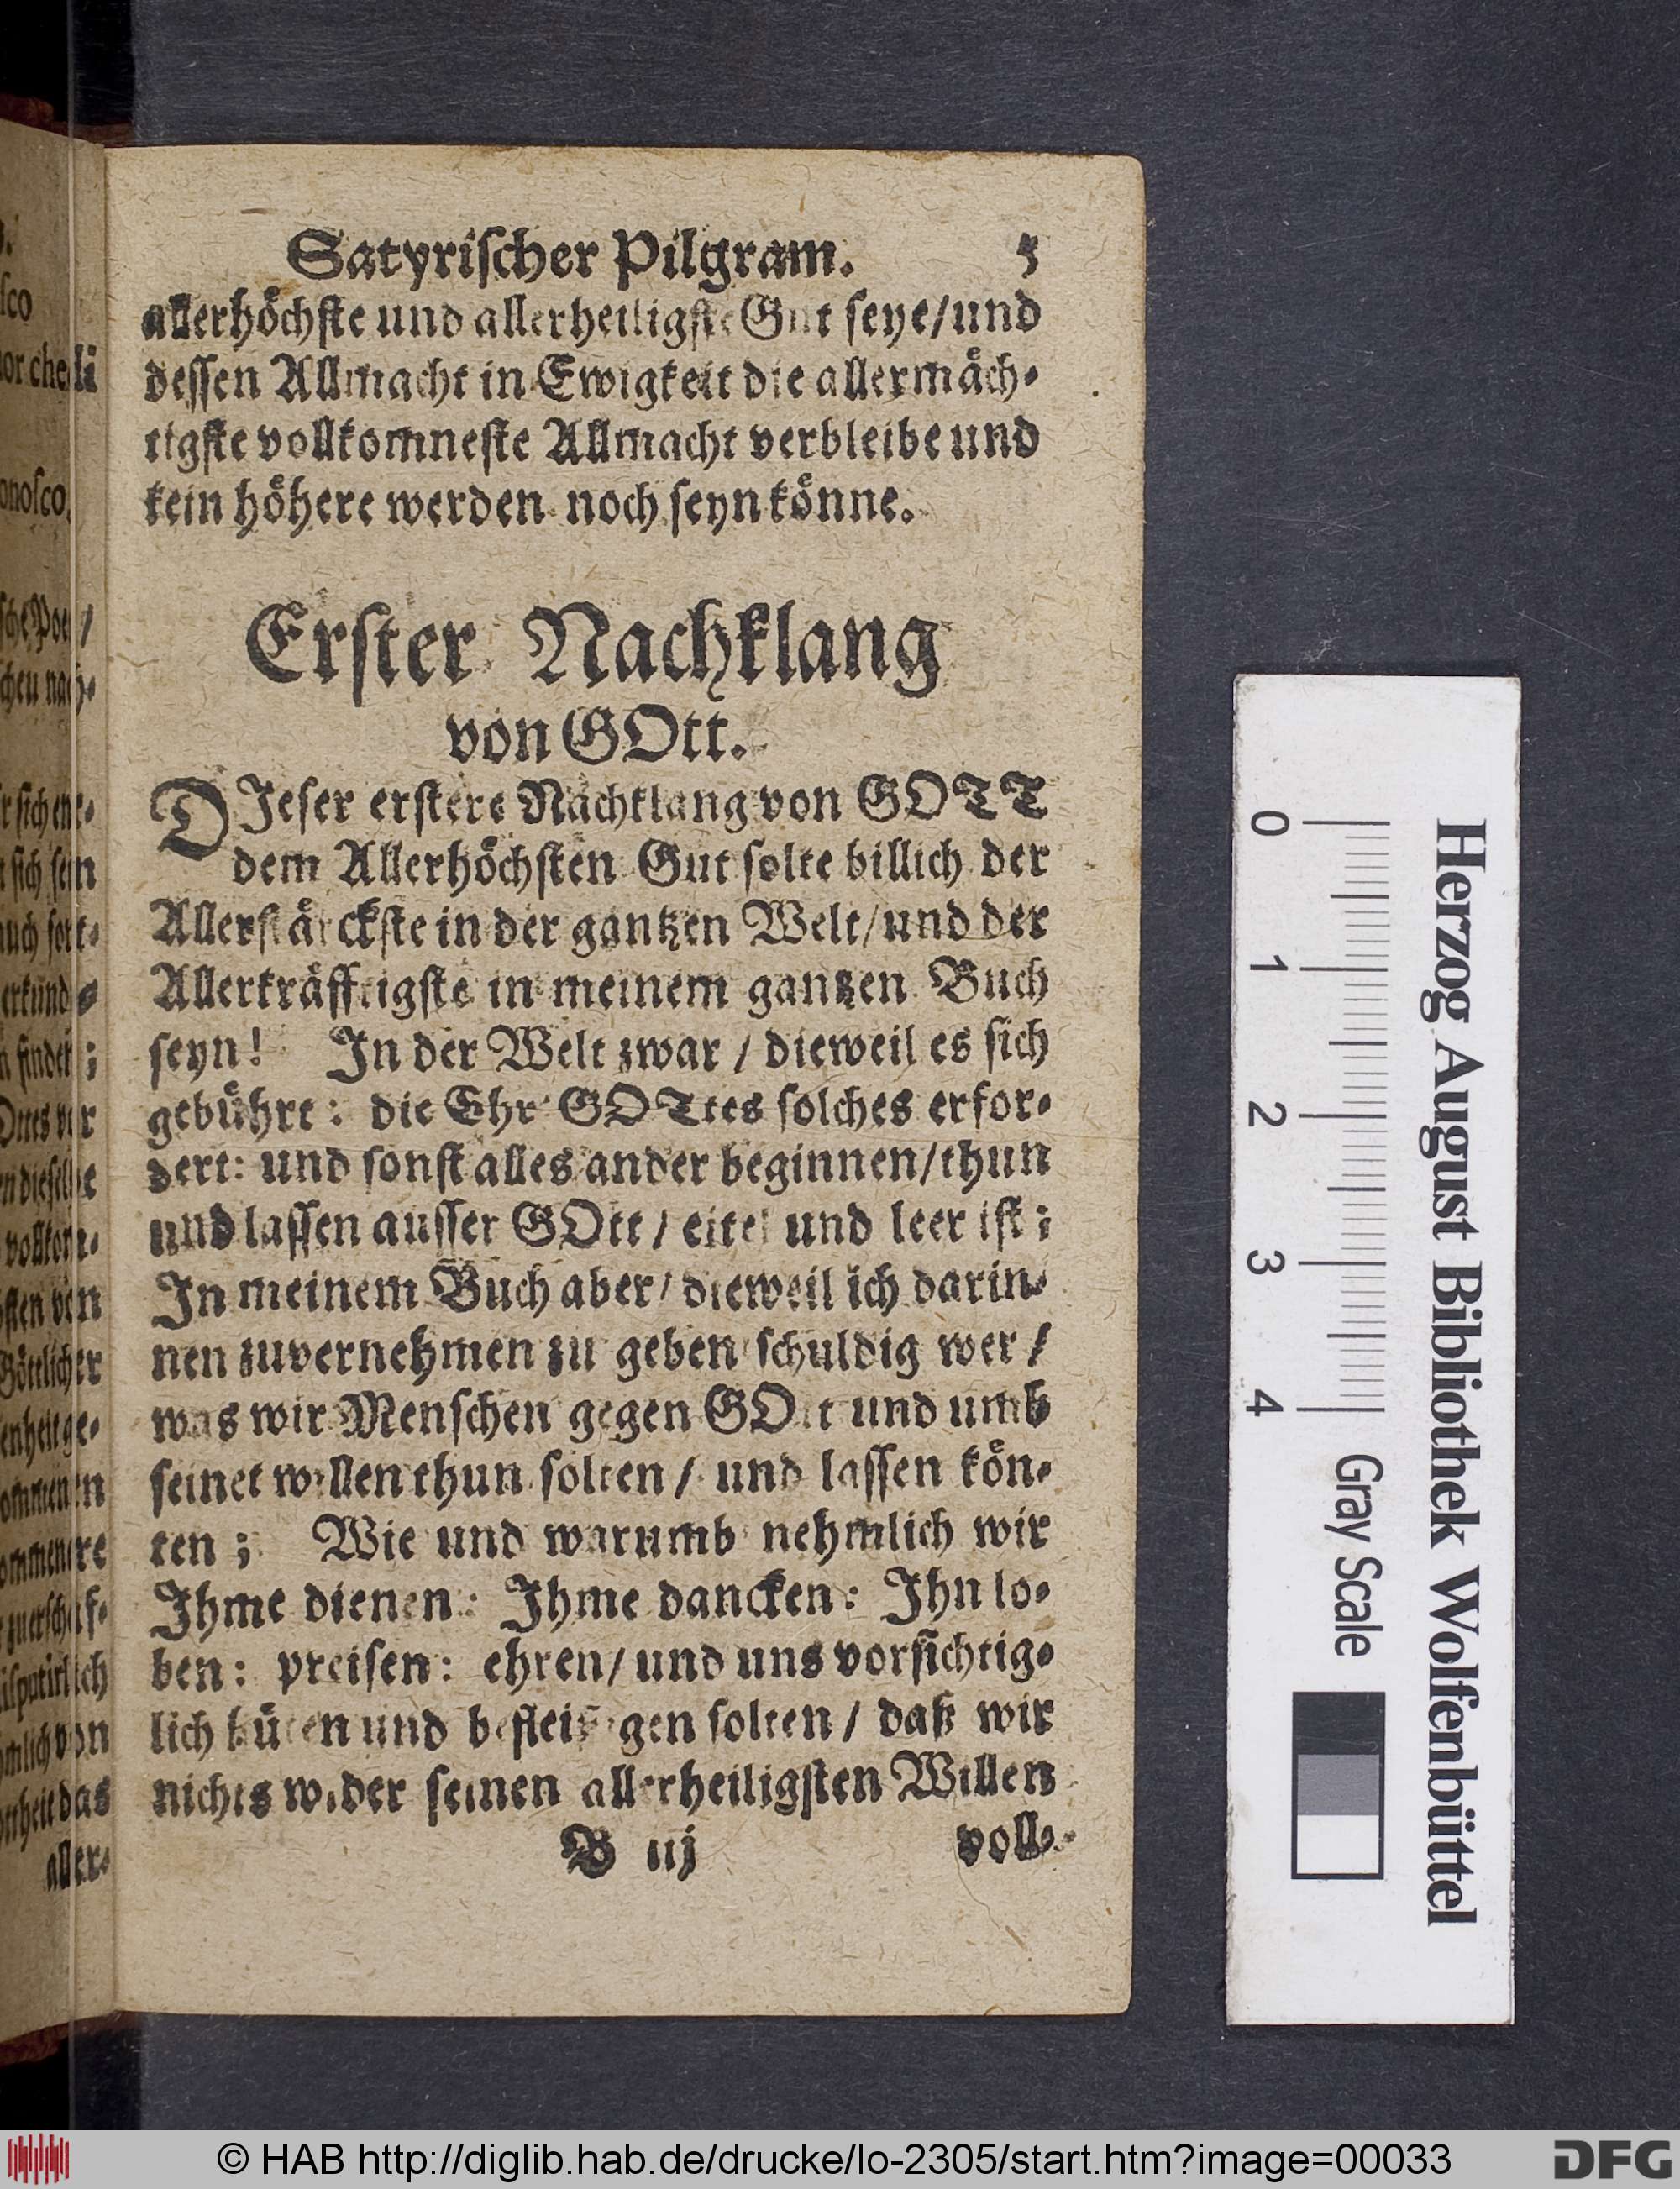 Satyrischer Pilgram. 5
allerhöchste und allerheiligste Gut seye/und
dessen Allmacht in Ewigkeit die allermäch-
tigste vollkomneste Allmacht verbleibe und
kein höhere werden noch seyn könne.
Erster Nachklang
von GOtt.
DJeser erstere Nachklang von GOTT
dem Allerhöchsten Gut solte billich der
Allerstärckste in der gantzen Welt/und der
Allerkräfftigste in meinem gantzen Buch
seyn! Jn der Welt zwar / dieweil es sich
gebührt: die Ehr GOTtes solches erfor-
dert: und sonst alles ander beginnen/thun
und lassen ausser GOtt / eitel und leer ist;
Jn meinem Buch aber/ dieweil ich darin-
nen zuvernehmen zu geben schuldig wer /
was wir Menschen gegen GOtt und umb
seinet willen thun solten / und lassen kön-
ten; Wie und warumb nehmlich wir
Jhme dienen: Jhme dancken: Jhn lo-
ben: preisen: ehren/ und uns vorsichtig-
lich hüten und befleissigen solten / daß wir
nichts wider seinen allerheiligsten Willen
B iij voll-
0 1 2 3 4 Gray Scale
Herzog August Bibliothek Wolfenbüttel
© HAB http://diglib.hab.de/drucke/lo-2305/start.htm?image=00033
DFG